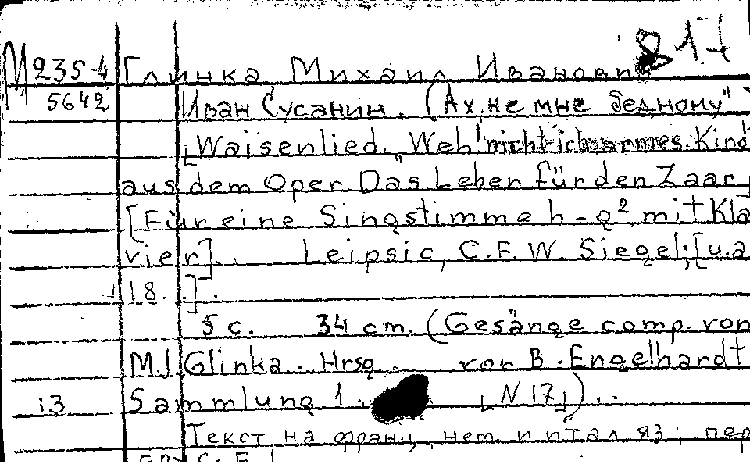 817
М235-4 Глинка Михаил Иванович
5642 Иван Сусанин. (Ах, не мне бедному")
[Waisenlied. „Weh! nicht ich armes Kind
aus dem Oper Das Leben für den Zaar
[Für eine Singstimme h-g², mit Kla
vier]. Leipsic, C.F.W. Siegel; [u.a
18. ].
5 c. 34 cm. (Gesänge comp. von
M.J. Glinka. Hrsg. von B. Engelhardt
13 Sammlung 1. N 17).
Текст на франц, нем. и итал яз; пер